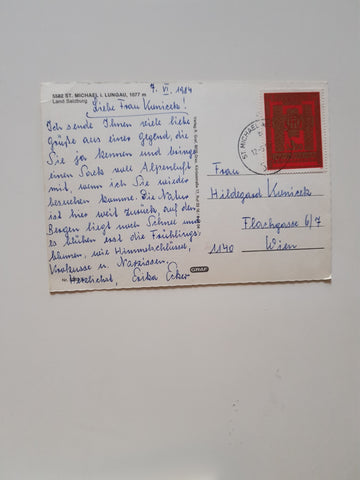 5582 ST. MICHAEL i. LUNGAU, 1077 m
Land Salzburg
7. VI. 1984
Liebe Frau Kunicek!
Ich sende Ihnen viele liebe
Grüße aus einer Gegend, die
Sie ja kennen und bringe
einen Sack voll Alpenluft
mit, wenn ich Sie wieder
besuchen komme. Die Natur
ist hier weit zurück, auf den
Bergen liegt noch Schnee und
es blühen erst die Frühlings-
blumen, wie Himmelschlüssel,
Krokusse u. Narzissen.
Herzlichst, Erika Ecker
GRAF
ST. MICHAEL
Frau
Hildegard Kunicek
Flachgasse 6/7
1140 Wien